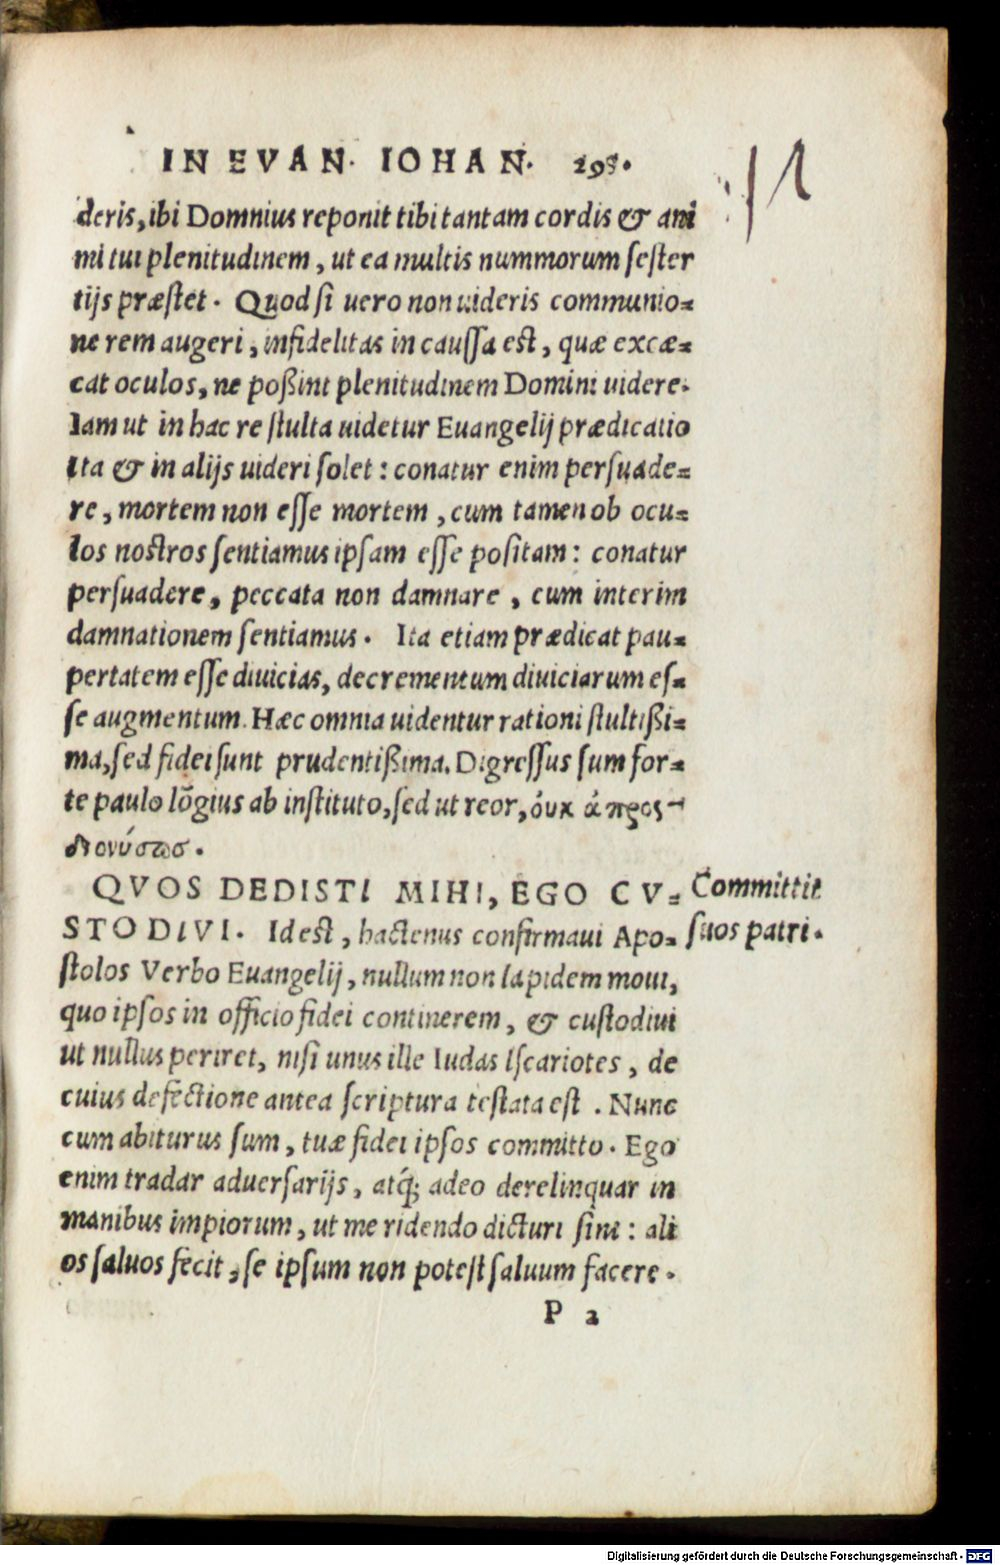 IN EVAN. IOHAN. 298.
deris, ibi Domnius reponit tibi tantam cordis & ani
mi tui plenitudinem, ut ea multis nummorum sester
tijs præstet. Quod si uero non uideris communio=
ne rem augeri, infidelitas in caussa est, quæ excæ=
cat oculos, ne poßint plenitudinem Domini uidere.
Iam ut in hac re stulta uidetur Euangelij prædicatio
ita & in alijs uideri solet: conatur enim persuade=
re, mortem non esse mortem, cum tamen ob ocu=
los nostros sentiamus ipsam esse positam: conatur
persuadere, peccata non damnare, cum interim
damnationem sentiamus. Ita etiam prædicat pau=
pertatem esse diuicias, decrementum diuiciarum es=
se augmentum. Hæc omnia uidentur rationi stultißi=
ma, sed fidei sunt prudentißima. Digressus sum for=
te paulo lõgius ab instituto, sed ut reor, ὀυκ ἀπροσ-
διονύσως.
QVOS DEDISTI MIHI, EGO CV=
STODIVI. Id est, hactenus confirmaui Apo=
stolos Verbo Euangelij, nullum non lapidem moui,
quo ipsos in officio fidei continerem, & custodiui
ut nullus periret, nisi unus ille Iudas Iscariotes, de
cuius defectione antea scriptura testata est. Nunc
cum abiturus sum, tuæ fidei ipsos committo. Ego
enim tradar aduersarijs, atq́; adeo derelinquar in
manibus impiorum, ut me ridendo dicturi sint: ali
os saluos fecit, se ipsum non potest saluum facere.
P 2
Committit
suos patri.
Digitalisierung gefördert durch die Deutsche Forschungsgemeinschaft - DFG